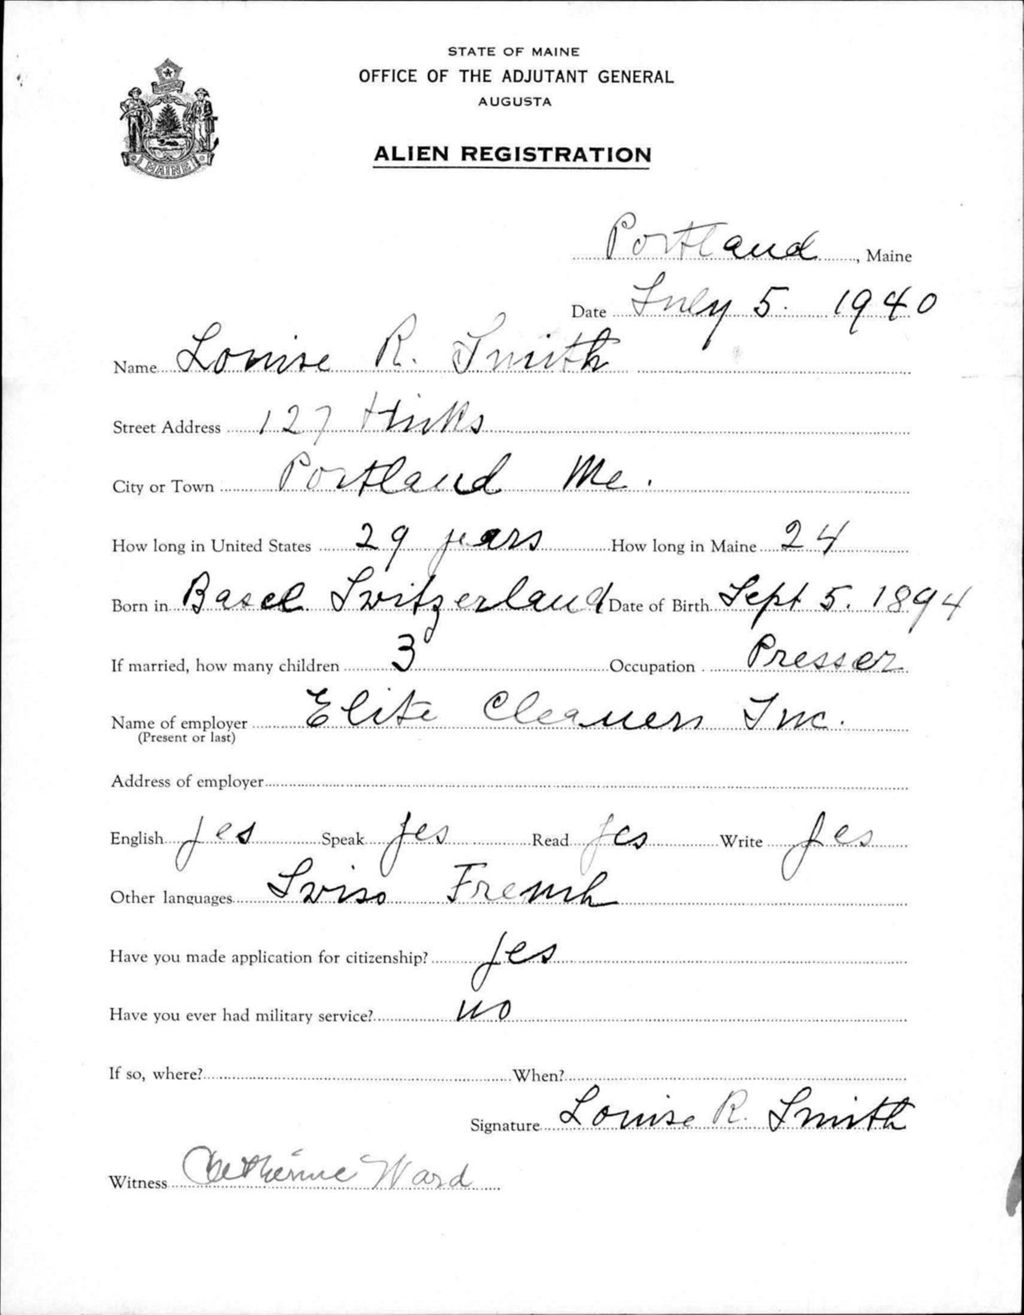 STATE OF MAINE
OFFICE OF THE ADJUTANT GENERAL
AUGUSTA
ALIEN REGISTRATION
MAINE
Portland, Maine
Date July 5. 1940
Name Louise R. Smith
Street Address 127 Hinks
City or Town Portland Me.
How long in United States 29 years How long in Maine 24
Born in Basel Switzerland Date of Birth Sept 5. 1894
If married, how many children 3 Occupation Presser
Name of employer Elite Cleaners Inc.
(Present or last)
Address of employer
English yes Speak yes Read yes Write yes
Other languages Swiss French
Have you made application for citizenship? yes
Have you ever had military service? no
If so, where? When?
Signature Louise R. Smith
Witness Catherine Ward